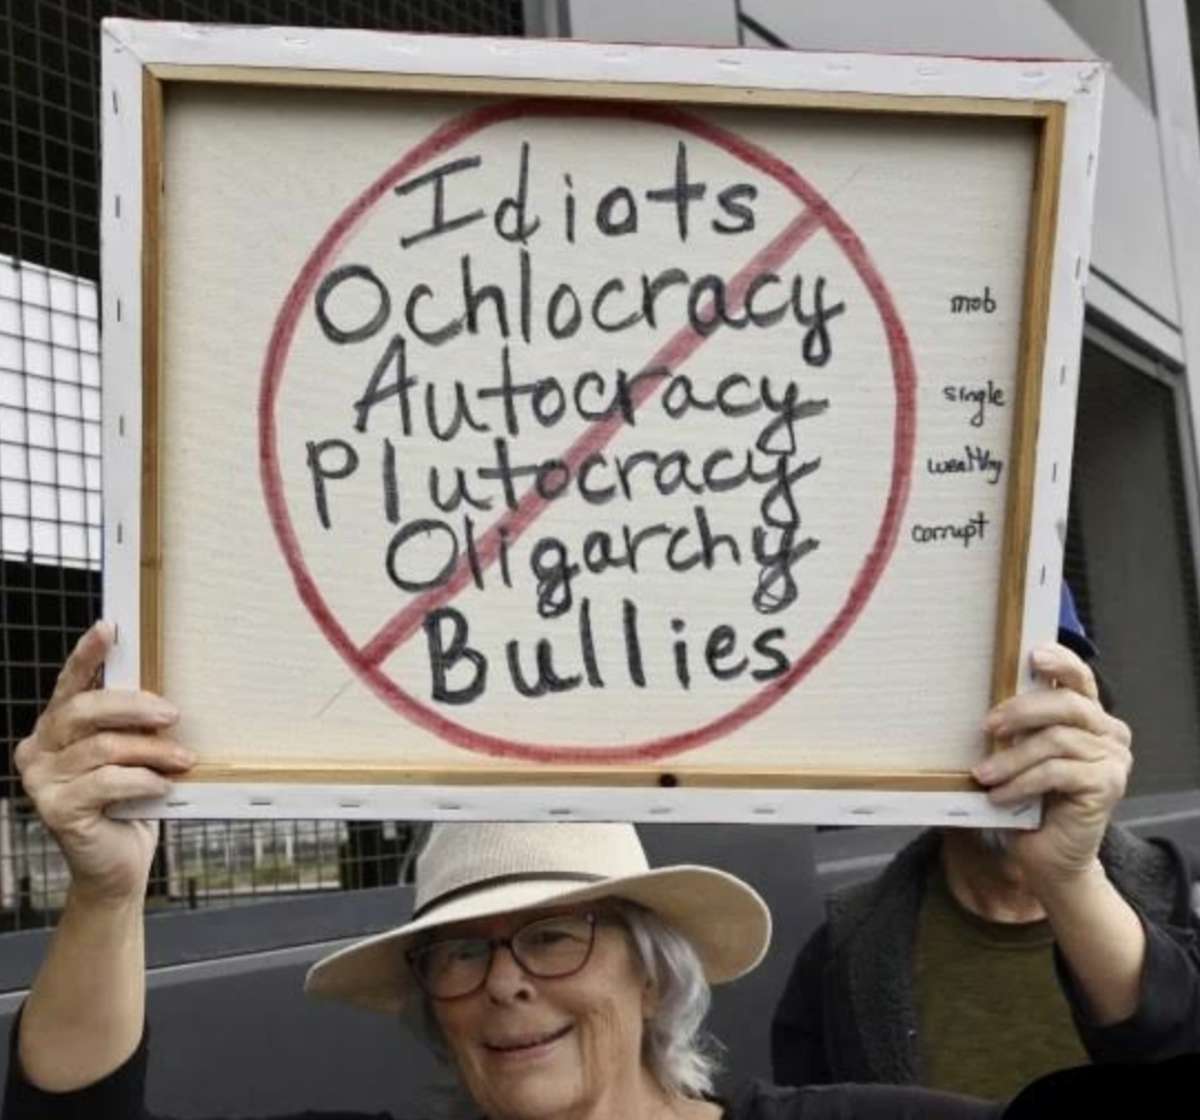 Idiots
Ochlocracy mob
Autocracy single
Plutocracy wealthy
Oligarchy corrupt
Bullies